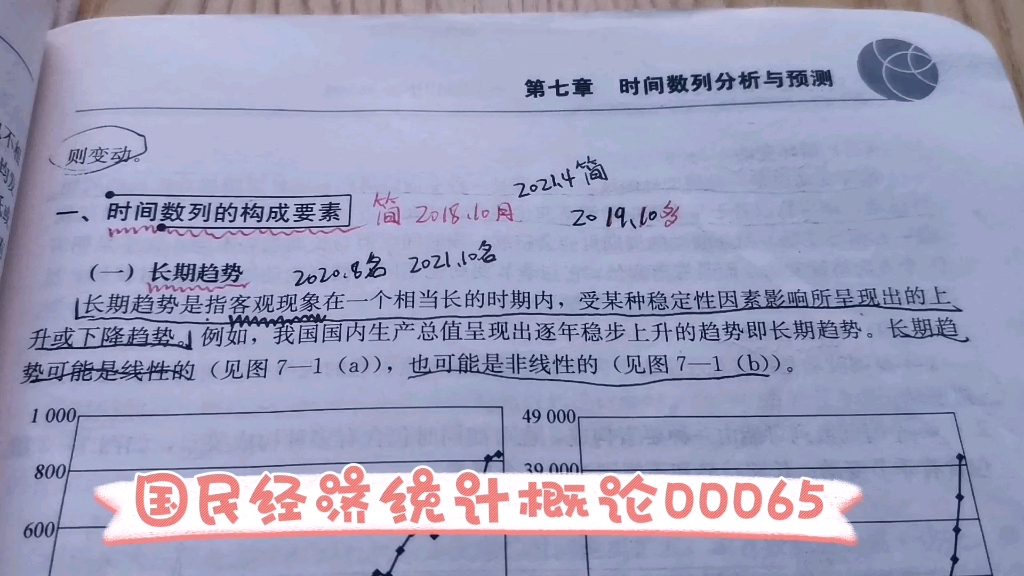 第七章 时间数列分析与预测
则变动。
2021.4 简
一、时间数列的构成要素 简 2018.10月 2019.10名
(一) 长期趋势 2020.8名 2021.10名
长期趋势是指客观现象在一个相当长的时期内，受某种稳定性因素影响所呈现出的上
升或下降趋势。例如，我国国内生产总值呈现出逐年稳步上升的趋势即长期趋势。长期趋
势可能是线性的（见图 7—1（a）），也可能是非线性的（见图 7—1（b））。
1 000 49 000
800 39 000
600
国民经济统计概论00065